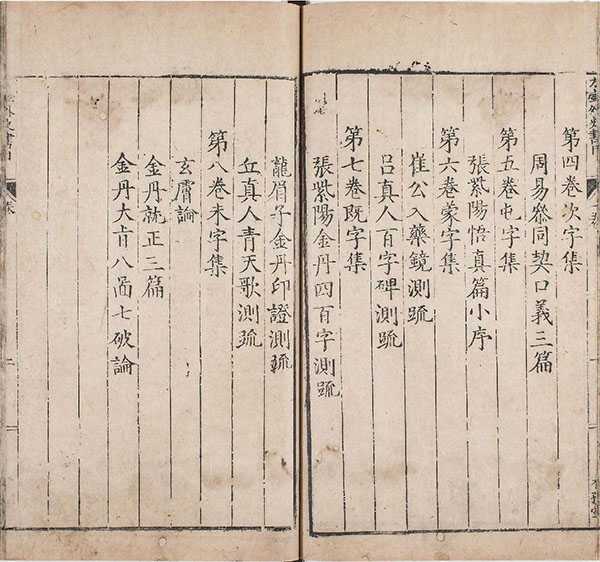 第四卷次字集
周易參同契口義三篇
第五卷屯字集
張紫陽悟真篇小序
第六卷蒙字集
崔公入藥鏡測疏
呂真人百字碑測疏
第七卷既字集
張紫陽金丹四百字測疏
龍眉子金丹印證測疏
丘真人青天歌測疏
第八卷未字集
玄膚論
金丹就正三篇
金丹大旨八圖七破論